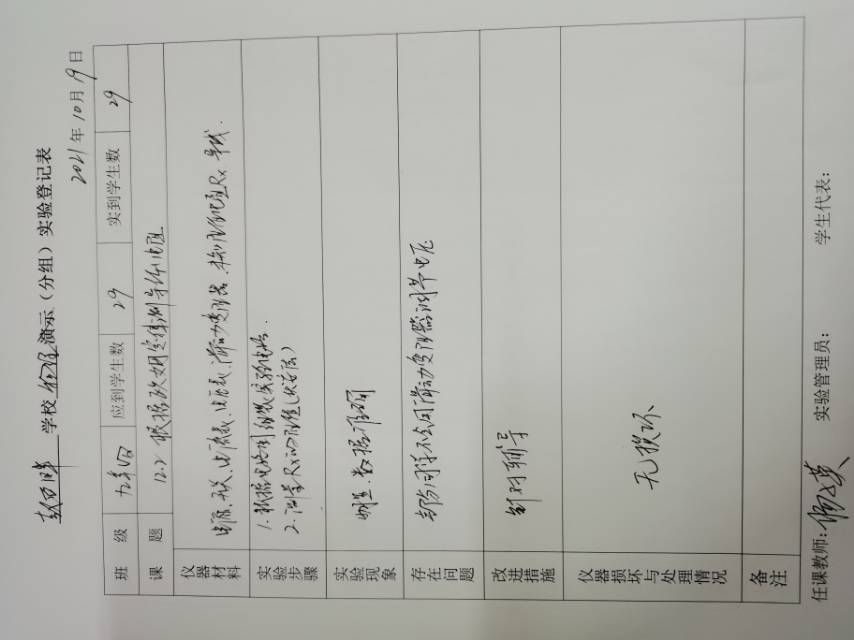 学校 物理 演示（分组）实验登记表
2021年10月19日
班级 九年四 应到学生数 29 实到学生数 29
课题 12.2 根据欧姆定律测导体电阻
仪器材料 电源、开关、电流表、电压表、滑动变阻器、待测电阻Rx 导线.
实验步骤 1. 根据电路图组装实验电路.
2. 测量Rx的阻值（伏安法）
实验现象 明显. 数据准确
存在问题 部分同学不会用滑动变阻器调节电压
改进措施 针对辅导
仪器损坏与处理情况 无损坏
备注
任课教师: 实验管理员: 学生代表: